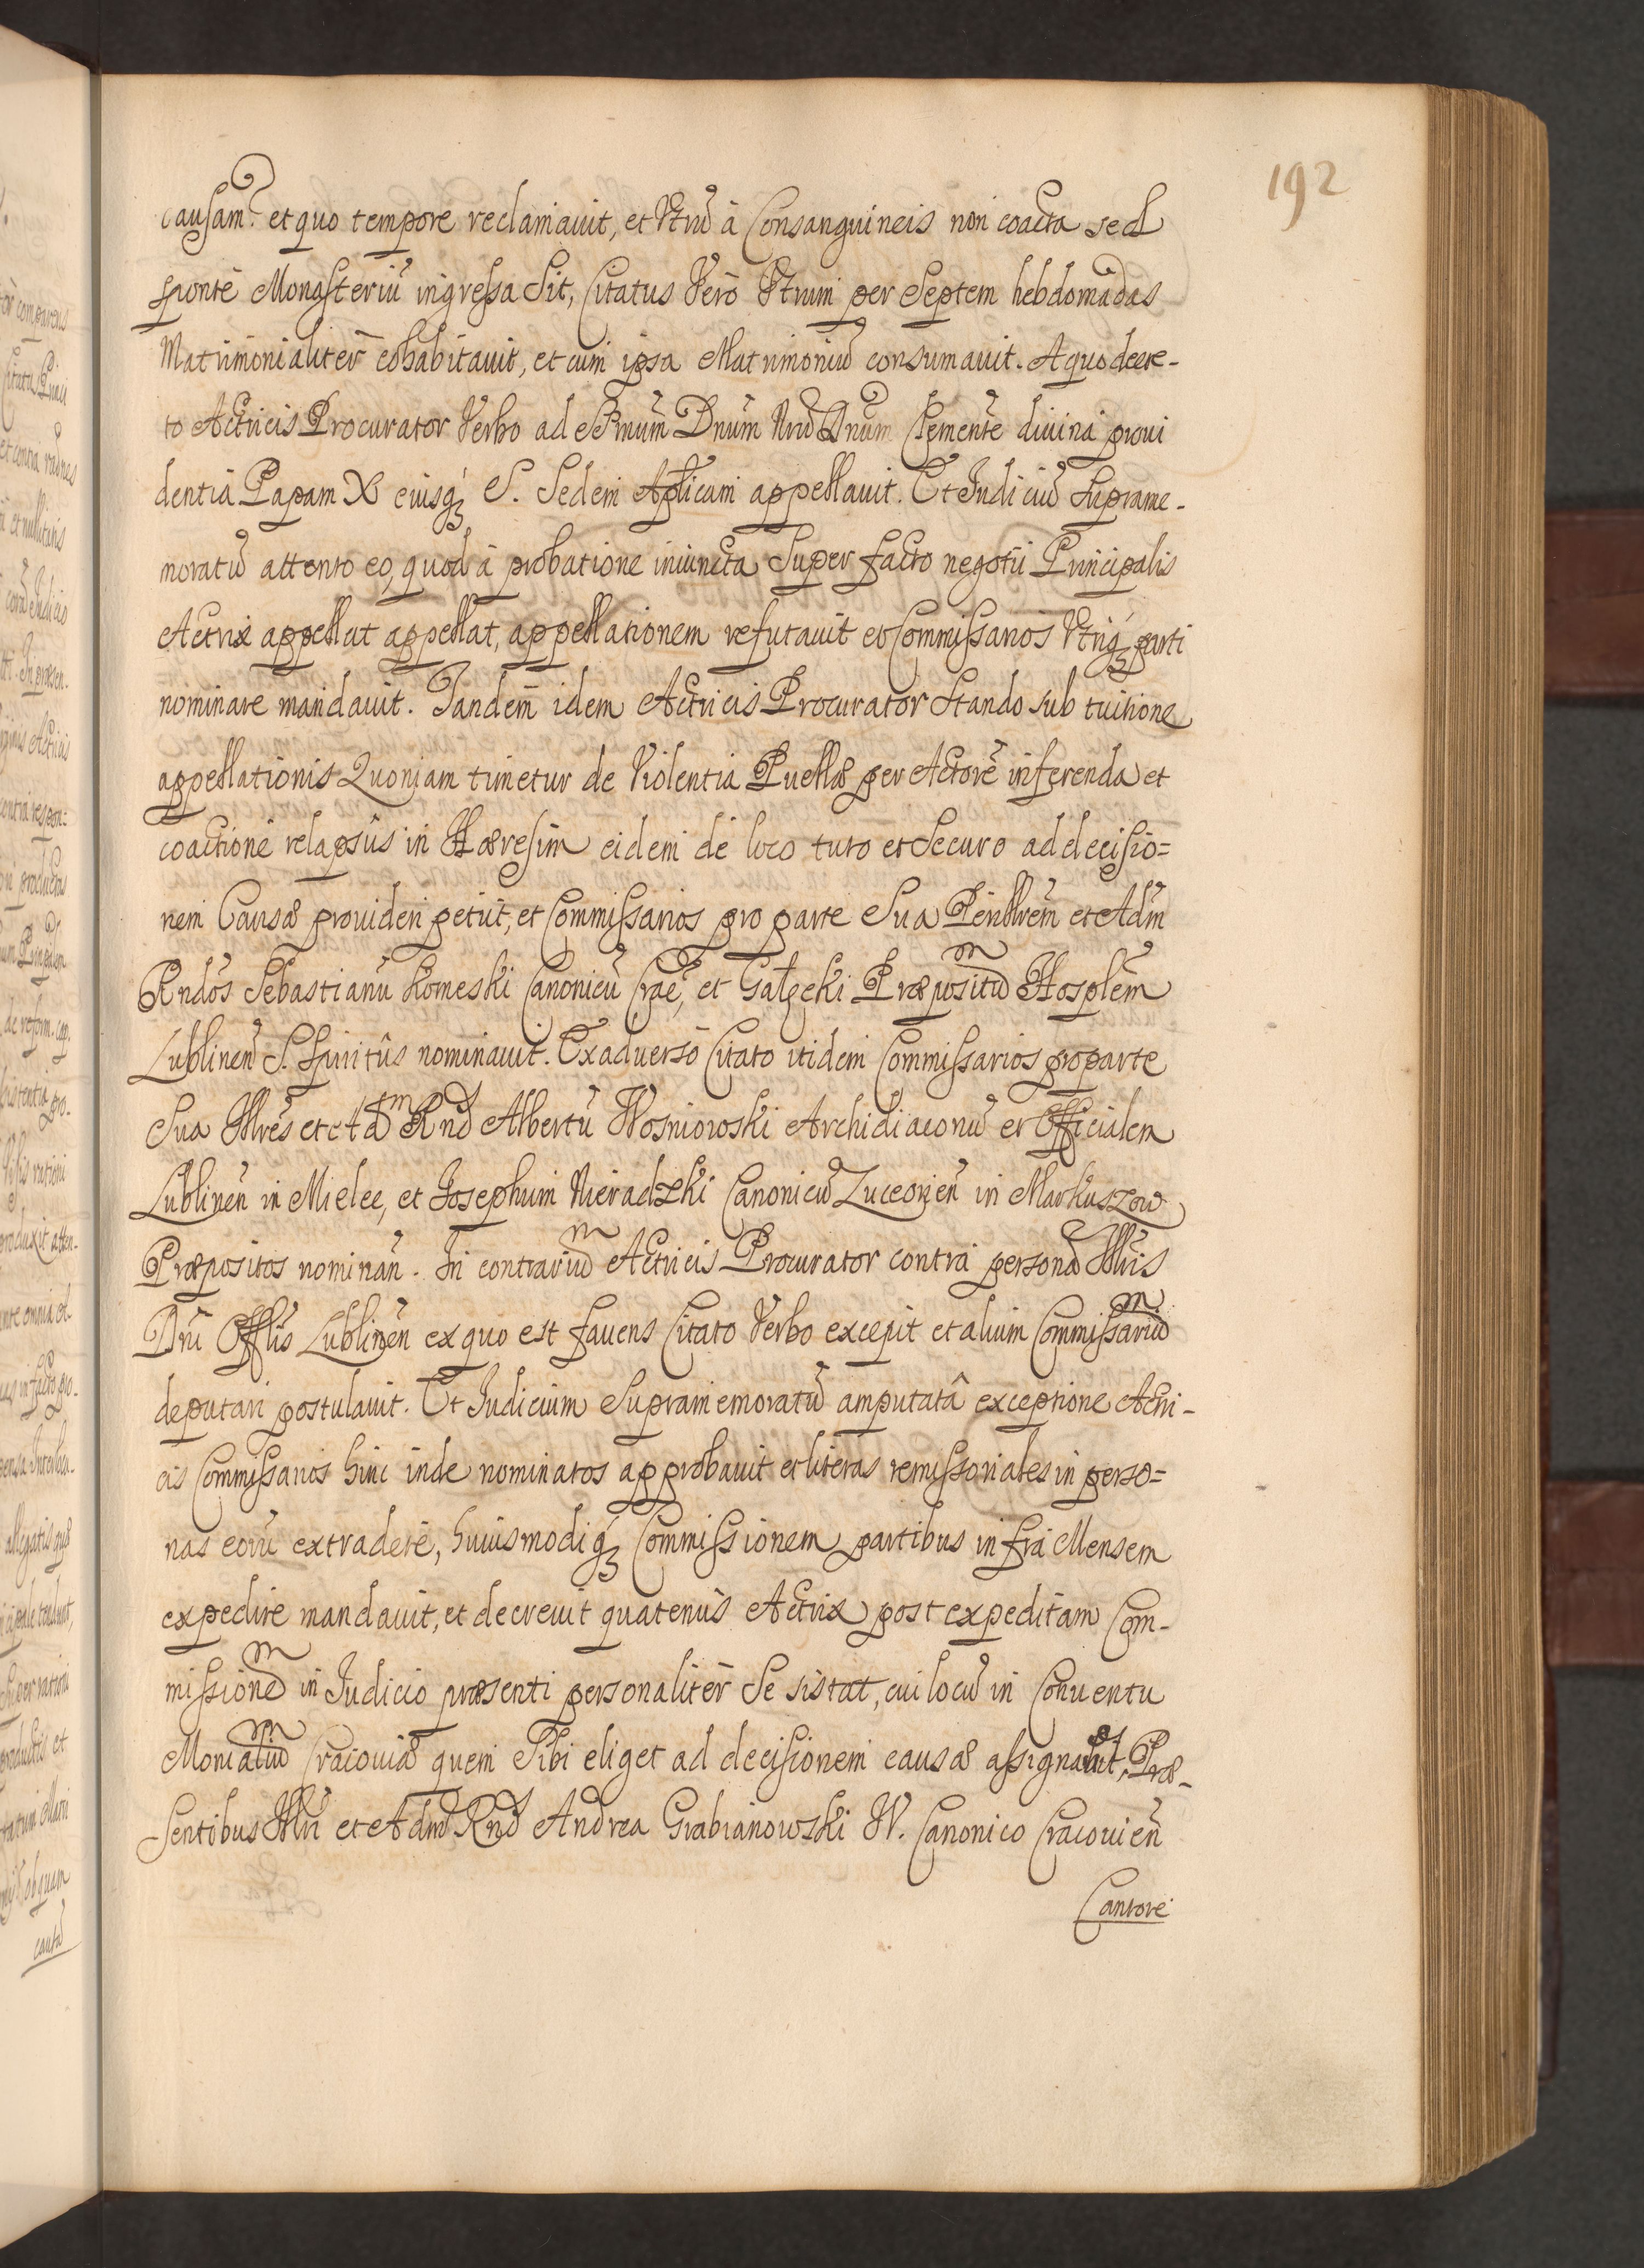 192
causam? et quo tempore reclamauit, et Vtrũ à Consanguineis non coacta sed
sponte Monasteriũ ingressa sit, Citatus Verò Vtrum per Septem hebdomadas
Matrimonialiter cohabitauit, et cum ipsa Matrimoniũ consumauit. A quo decre-
to Actricis Procurator Verbo ad SSmum Dnum Nrũ Dnum Clemente diuina proui
dentia Papam X eiusq́ꝫ S. Sedem Aplicam appellauit. Et Judiciũ Suprame-
moratũ attento eo, quod à probatione iniuncta Super facto negotii Principalis
Actrix appellat appellat, appellationem refutauit et Commissarios Vtriq́ꝫ parti
nominare mandauit. Tandem idem Actricis Procurator Stando sub tuitione
appellationis Quoniam timetur de Violentia Puellæ per Actorẽ inferenda et
coactione relapsus in Hæresim eidem de loco tuto et Securo ad decisio=
nem Causæ prouideri petiit, et Commissarios pro parte Sua Perillrem et Adm
Rndos Sebastianũ Komeski Canonicũ Crac, et Gałecki Præpositũ Hosplem
Lublinen̄ S. Spiritûs nominauit. Ex aduerso Citato itidem Commissarios pro parte
Sua Illres et Adm Rnd Albertũ Wosniowski Archidiaconũ et Officialem
Lublinen̄ in Mielec, et Josephum Nieradzki Canonicũ Luceorien̄ in Markuszow
Præpositos nominan̄. In contrariũ Actricis Procurator contra personã Illris
Dni Offlis Lublinen̄ ex quo est fauens Citato Verbo excepit et alium Commissariũ
deputari postulauit. Et Judicium Supramemoratũ amputatâ exceptione Actri-
cis Commissarios hinc inde nominatos approbauit et literas remissoriales in perso=
nas eorũ extradere, huiusmodiq́ꝫ Commissionem partibus infra Mensem
expedire mandauit, et decreuit quatenus Actrix post expeditam Com-
missionẽ in Judicio præsenti personaliter Se sistat, cui locũ in Conuentu
Monialiũ Cracouiæ quem Sibi eliget ad decisionem causæ assignauit, Præ-
sentibus Illri et Adm Rnd Andrea Grabianowski W. Canonico Cracouien̄
Cantore